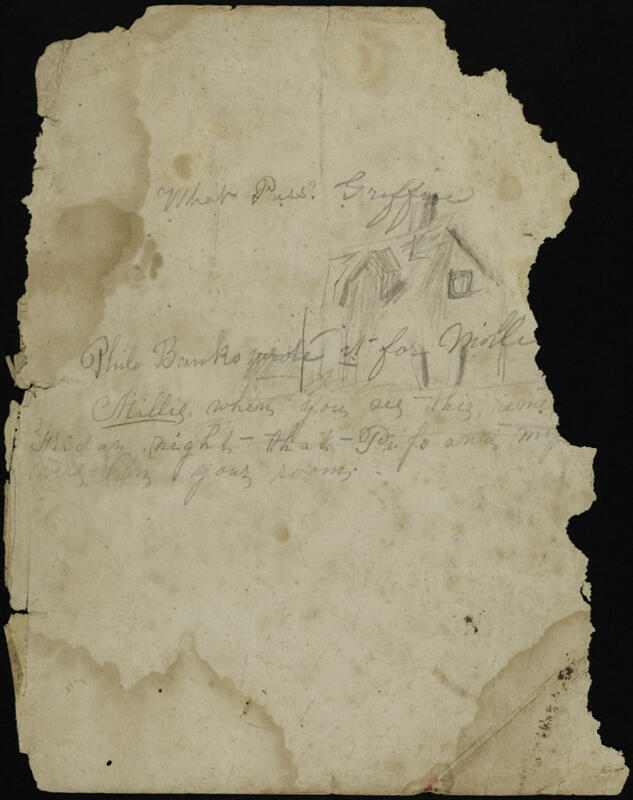 What Puss? Griffin
Philo Banks wrote it for Molli
Millie, when you see this, rem
Friday night that Pufs and my
in your room.